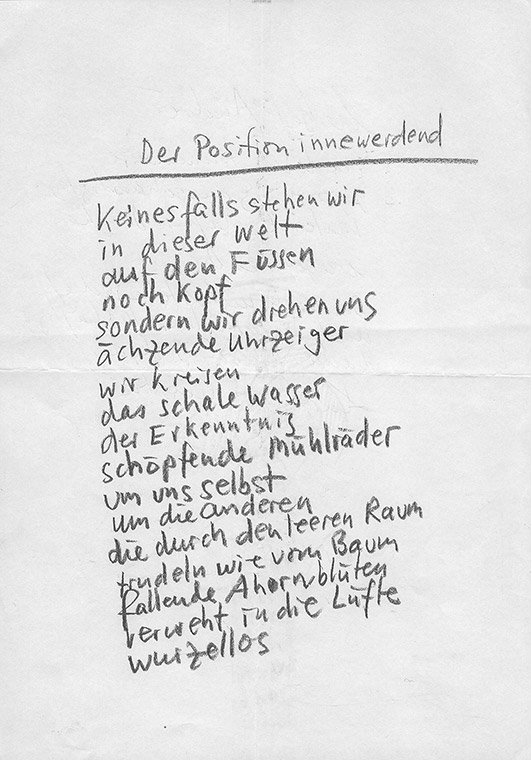 Der Position innewerdend
Keinesfalls stehen wir
in dieser Welt
auf den Füssen
noch Kopf
sondern wir drehen uns
ächzende Uhrzeiger
wir kreisen
das schale Wasser
der Erkenntnis
schöpfende Mühlräder
um uns selbst
um die anderen
die durch den leeren Raum
trudeln wie vom Baum
fallende Ahornblüten
verweht in die Lüfte
wurzellos